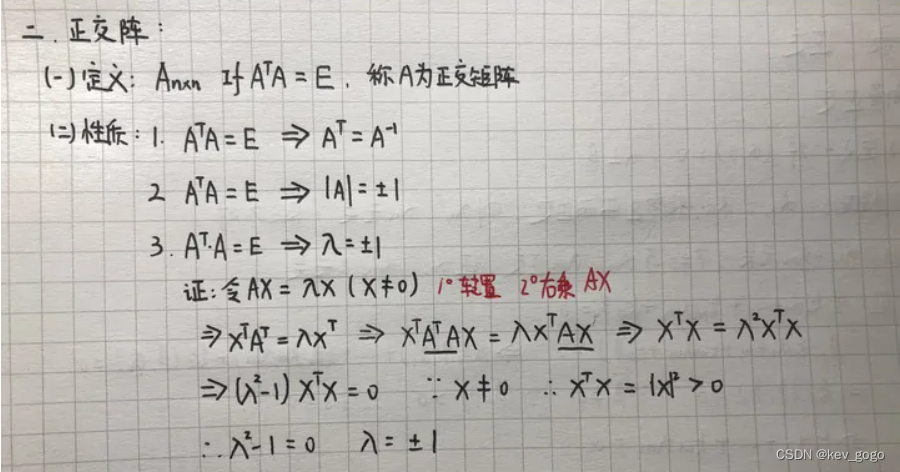 二. 正交阵:
(一) 定义: Aₙₓₙ If AᵀA = E, 称A为正交矩阵
(二) 性质: 1. AᵀA = E ⇒ Aᵀ = A⁻¹
2 AᵀA = E ⇒ |A| = ±1
3. Aᵀ·A = E ⇒ λ = ±1
证: 令 AX = λX (X ≠ 0) 1° 转置 2° 右乘 AX
⇒ XᵀAᵀ = λXᵀ ⇒ XᵀAᵀAX = λXᵀAX ⇒ XᵀX = λ²XᵀX
⇒ (λ²-1) XᵀX = 0 ∵ X ≠ 0 ∴ XᵀX = |X|² > 0
∴ λ²-1 = 0 λ = ±1
CSDN @kev_gogo